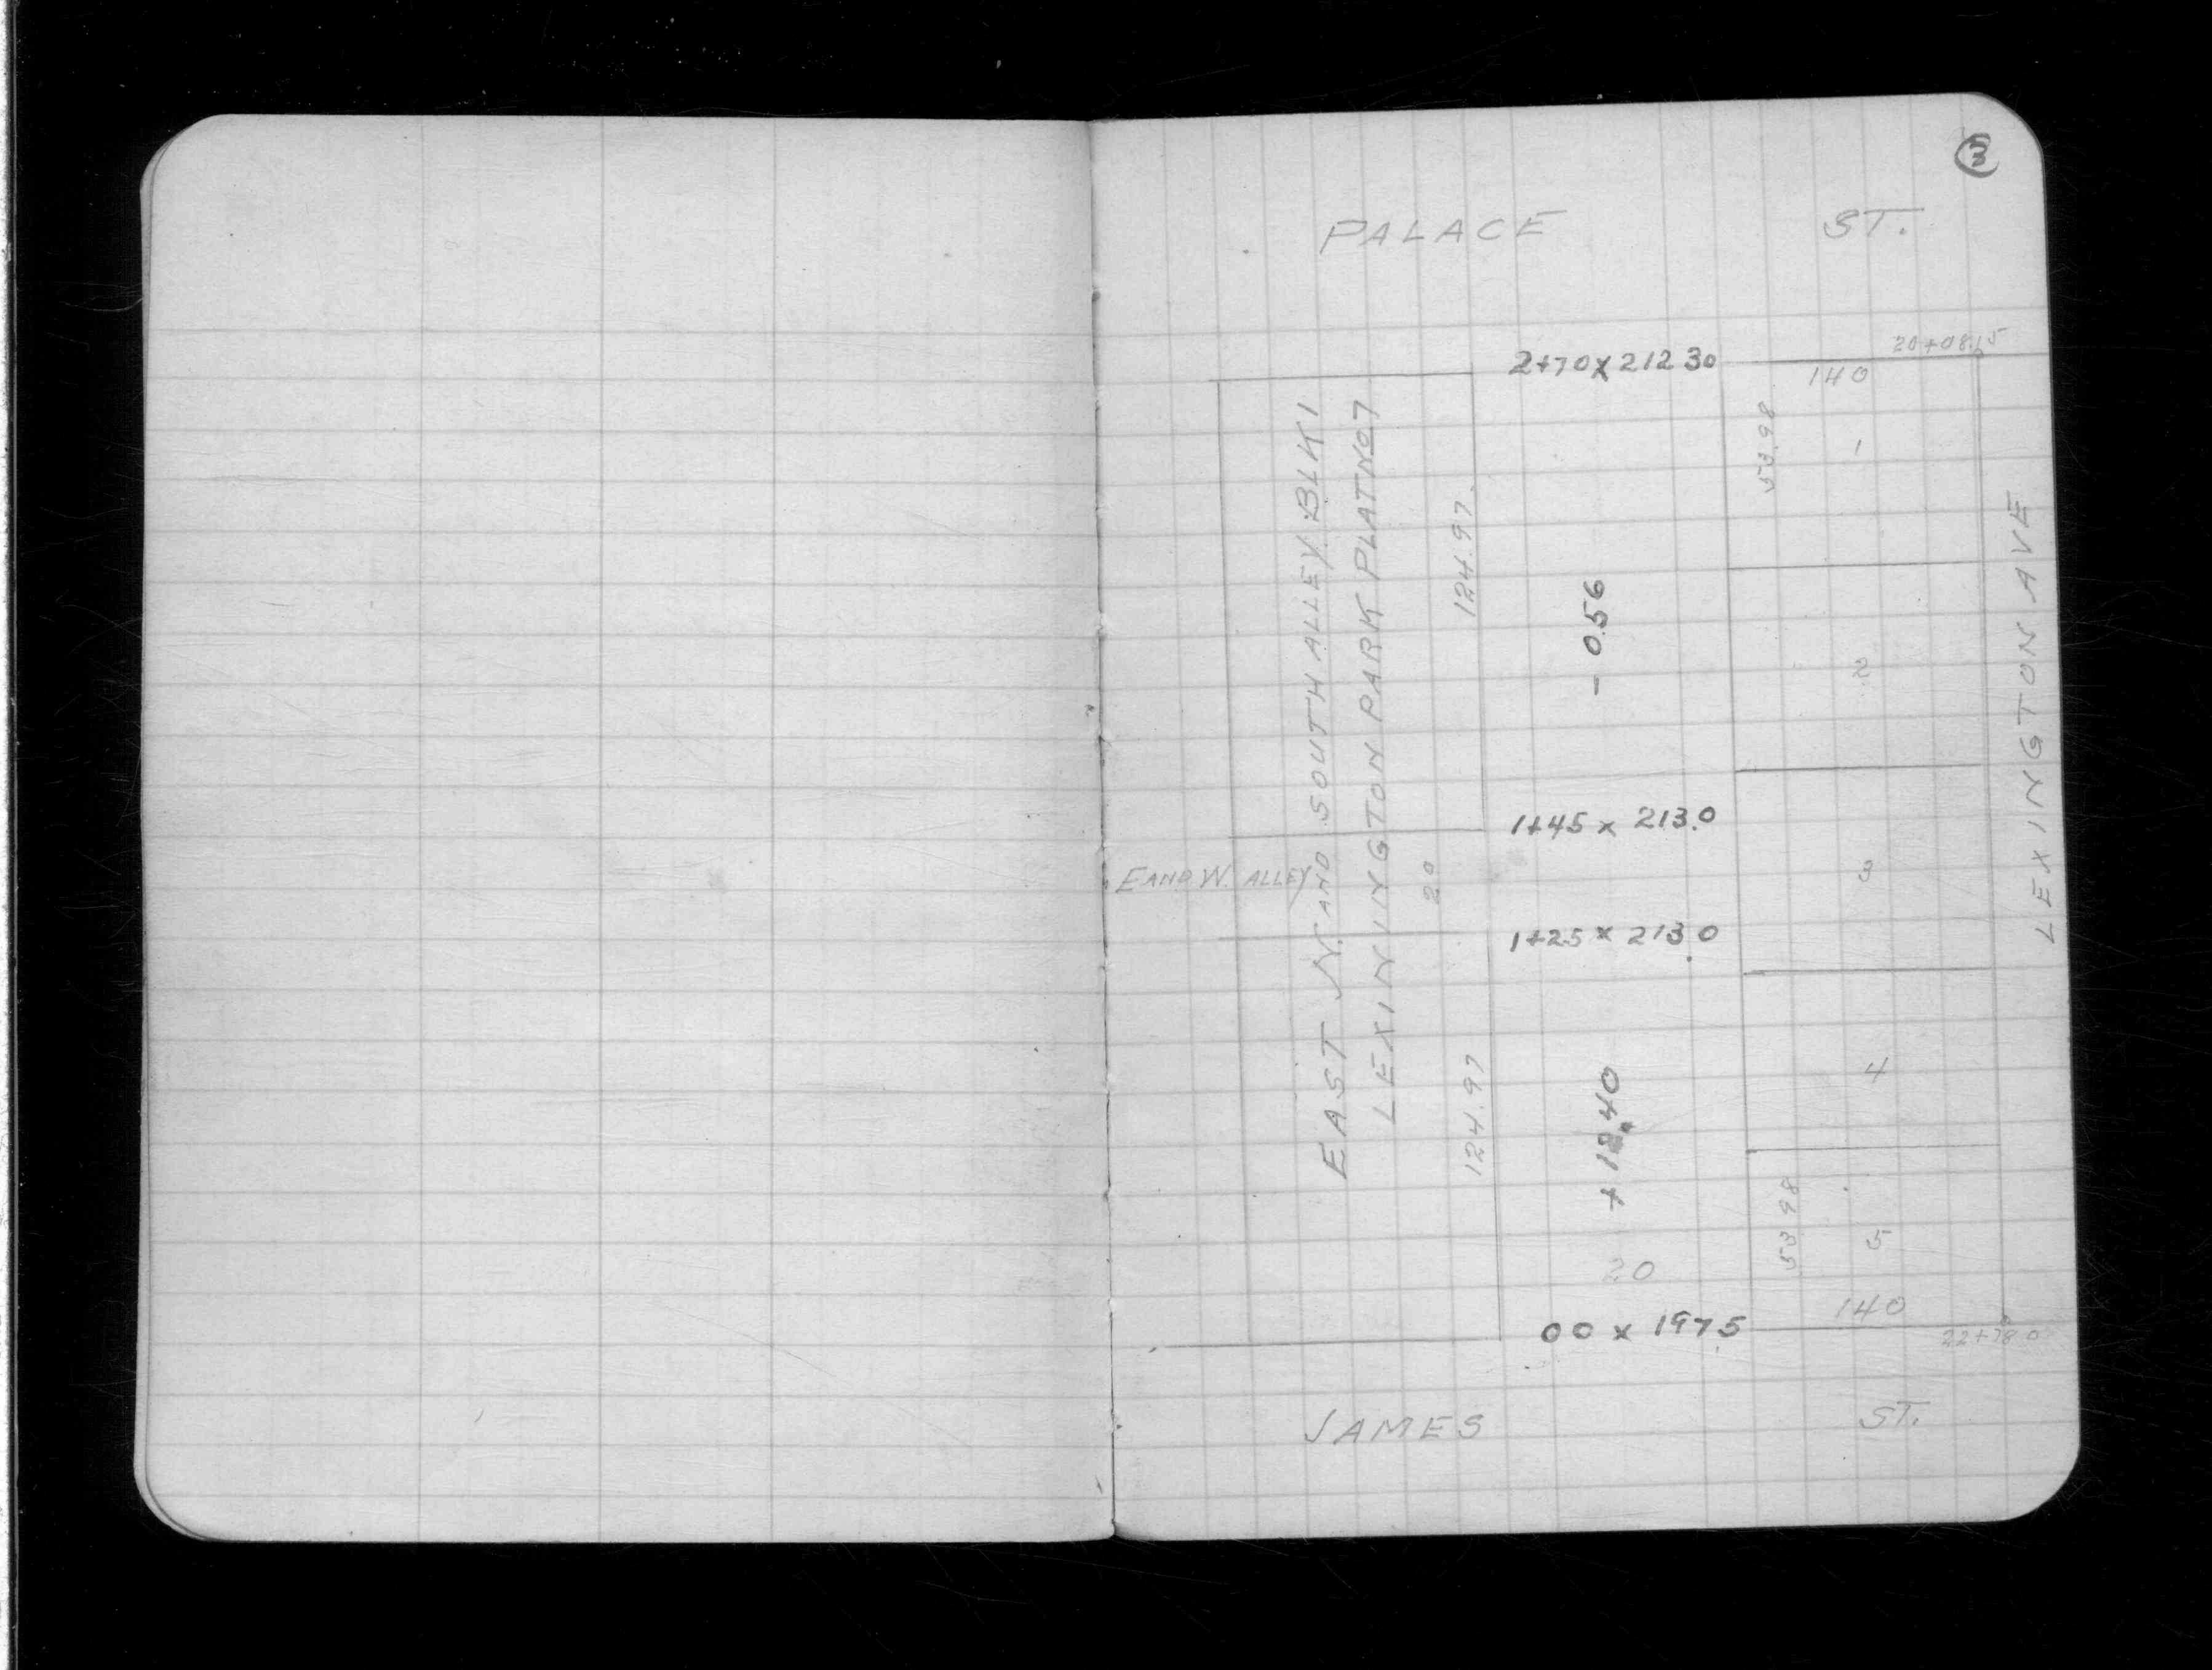 3
PALACE ST.
20+08.15
2+70 x 212 30
140
53.98
1
EAST N. AND SOUTH ALLEY BLK 1
LEXINGTON PARK PLAT NO 7
124.97
- 0.56
2
LEXINGTON AVE
1+45 x 213.0
E AND W. ALLEY
20
3
1+25 x 213.0
4
124.97
+ 12.40
53 98
5
20
140
00 x 197.5
JAMES ST.